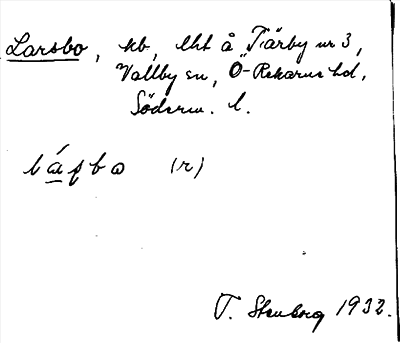 Larsbo, kb, lht å Tiärby nr 3,
Vallby sn, Ö-Rekarne hd,
Söderm. l.
láſbo (r)
T. Stenborg 1932.